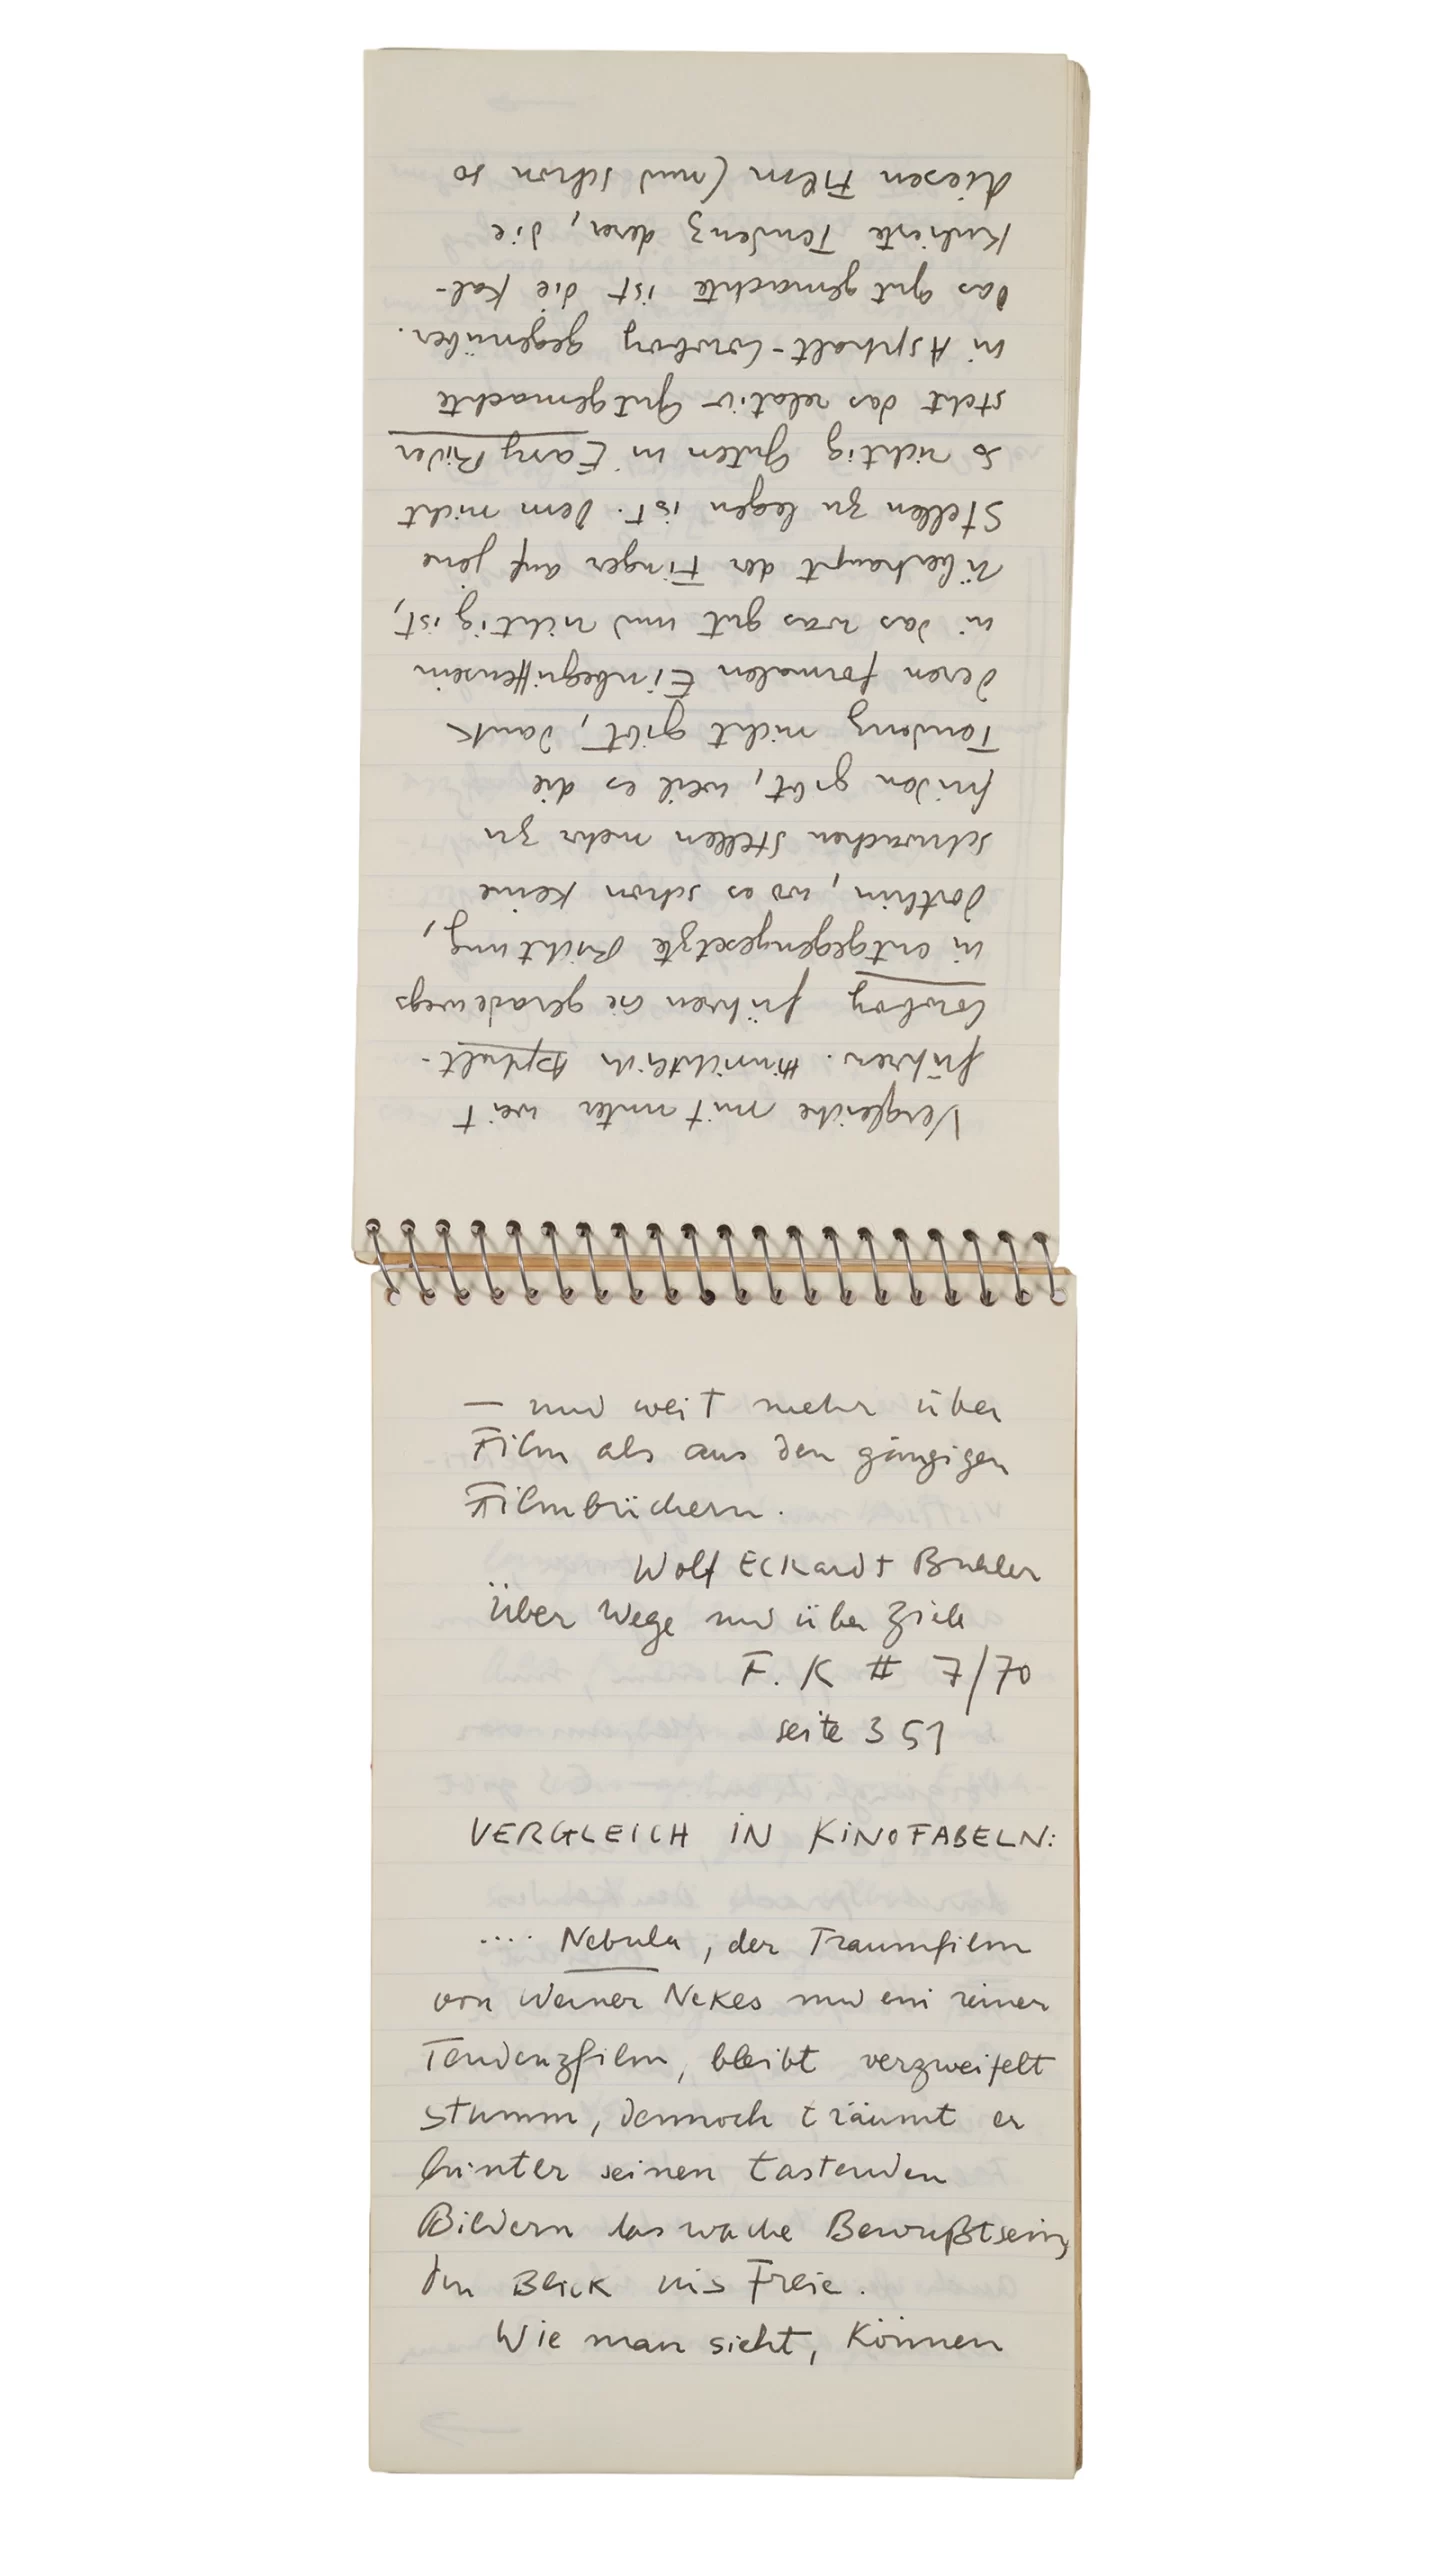 — und weit mehr über
Film als aus den gängigen
Filmbüchern.
Wolf Eckardt Bühler
Über Wege und über Ziele
F. K # 7/70
seite 351
VERGLEICH IN KINOFABELN:
.... Nebula, der Traumfilm
von Werner Nekes und ein reiner
Tendenzfilm, bleibt verzweifelt
stumm, dennoch träumt er
hinter seinen tastenden
Bildern das wache Bewußtsein,
den Blick ins Freie.
Wie man sieht, können
Vergleiche mitunter weit
führen. Hinsichtlich Asphalt-
Cowboy führen sie geradewegs
in entgegengesetzte Richtung,
dorthin, wo es schon keine
schwachen Stellen mehr zu
finden gibt, weil es die
Tendenz nicht gibt, dank
deren formalen Einbegriffensein
in das was gut und richtig ist,
überhaupt der Finger auf jene
Stellen zu legen ist. Dem nicht
so richtig Guten in Easy Rider
steht das relativ Gutgemachte
in Asphalt-Cowboy gegenüber.
Das gut gemachte ist die kal-
kulierte Tendenz derer, die
diesen Film (und schon so